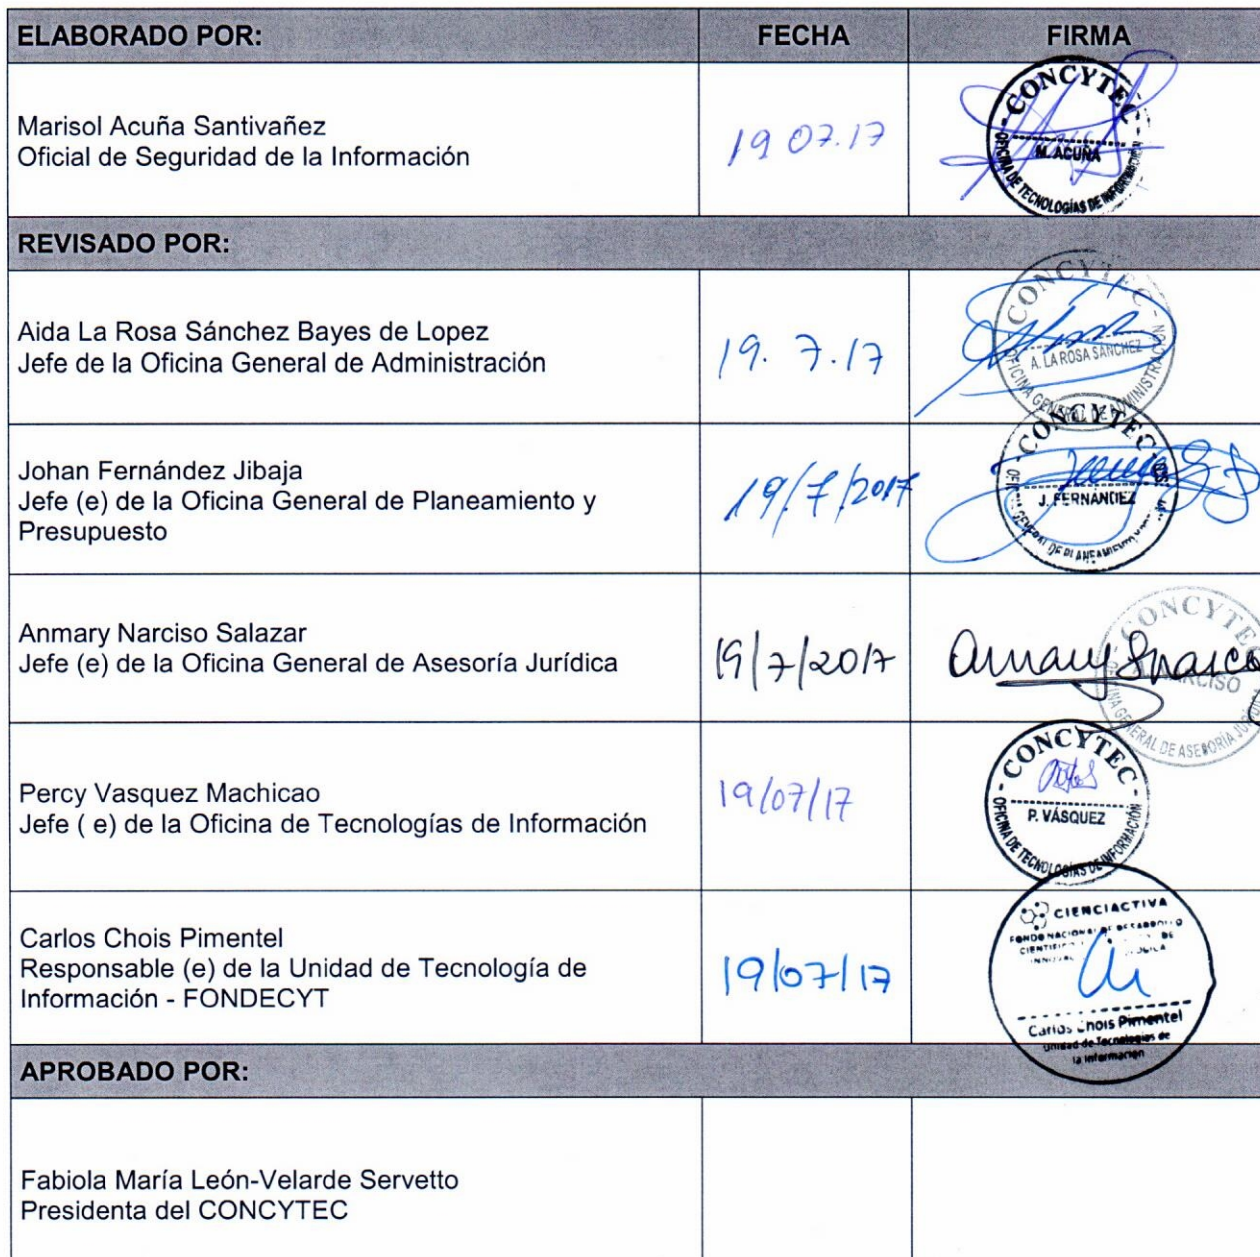 ELABORADO POR: FECHA FIRMA
Marisol Acuña Santivañez
Oficial de Seguridad de la Información
19 07.17
CONCYTEC
M. ACUÑA
OFICINA DE TECNOLOGÍAS DE INFORMACIÓN
REVISADO POR:
Aida La Rosa Sánchez Bayes de Lopez
Jefe de la Oficina General de Administración
19. 7.17
CONCYTEC
A. LA ROSA SÁNCHEZ
OFICINA GENERAL DE ADMINISTRACIÓN
Johan Fernández Jibaja
Jefe (e) de la Oficina General de Planeamiento y
Presupuesto
19/7/2017
CONCYTEC
J. FERNÁNDEZ
OFICINA GENERAL DE PLANEAMIENTO
Anmary Narciso Salazar
Jefe (e) de la Oficina General de Asesoría Jurídica
19/7/2017
CONCYTEC
NARCISO
OFICINA GENERAL DE ASESORÍA JURÍDICA
Percy Vasquez Machicao
Jefe ( e) de la Oficina de Tecnologías de Información
19/07/17
CONCYTEC
P. VÁSQUEZ
OFICINA DE TECNOLOGÍAS DE INFORMACIÓN
Carlos Chois Pimentel
Responsable (e) de la Unidad de Tecnología de
Información - FONDECYT
19/07/17
CIENCIACTIVA
FONDO NACIONAL DE DESARROLLO
Carlos Chois Pimentel
Unidad de Tecnologías de
la Información
APROBADO POR:
Fabiola María León-Velarde Servetto
Presidenta del CONCYTEC